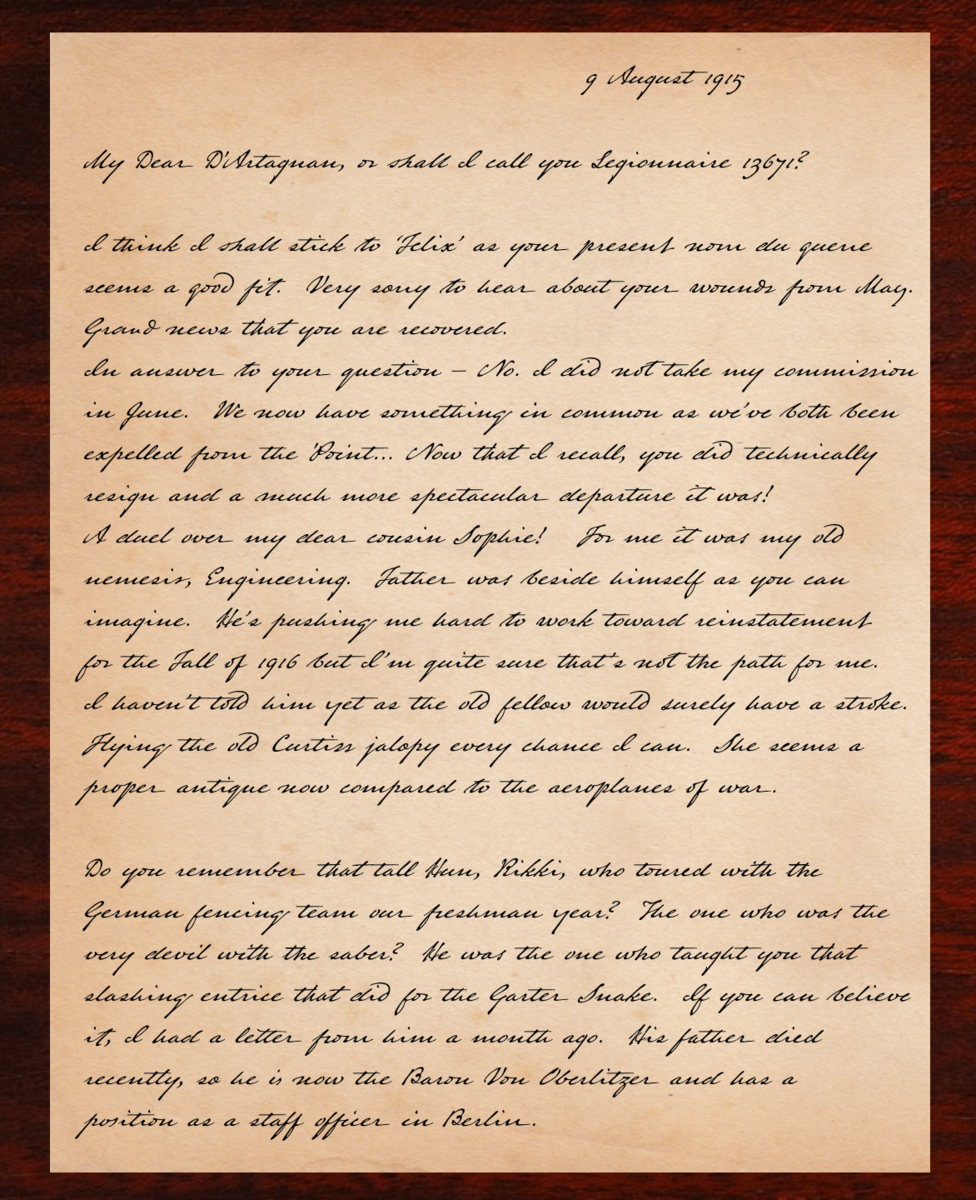 9 August 1915
My Dear D'Artagnan, or shall I call you Legionnaire 13671?
I think I shall stick to 'Felix' as your present nom du guerre
seems a good fit. Very sorry to hear about your wounds from May.
Grand news that you are recovered.
In answer to your question – No. I did not take my commission
in June. We now have something in common as we've both been
expelled from the 'Point... Now that I recall, you did technically
resign and a much more spectacular departure it was!
A duel over my dear cousin Sophie! For me it was my old
nemesis, Engineering. Father was beside himself as you can
imagine. He's pushing me hard to work toward reinstatement
for the Fall of 1916 but I'm quite sure that's not the path for me.
I haven't told him yet as the old fellow would surely have a stroke.
Flying the old Curtiss jalopy every chance I can. She seems a
proper antique now compared to the aeroplanes of war.
Do you remember that tall Hun, Rikki, who toured with the
German fencing team our freshman year? The one who was the
very devil with the saber? He was the one who taught you that
slashing entrice that did for the Garter Snake. If you can believe
it, I had a letter from him a month ago. His father died
recently, so he is now the Baron Von Oberlitzer and has a
position as a staff officer in Berlin.